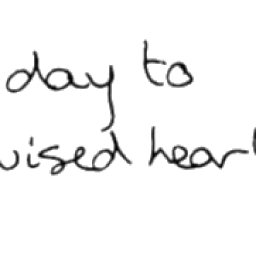 day to
uised hear